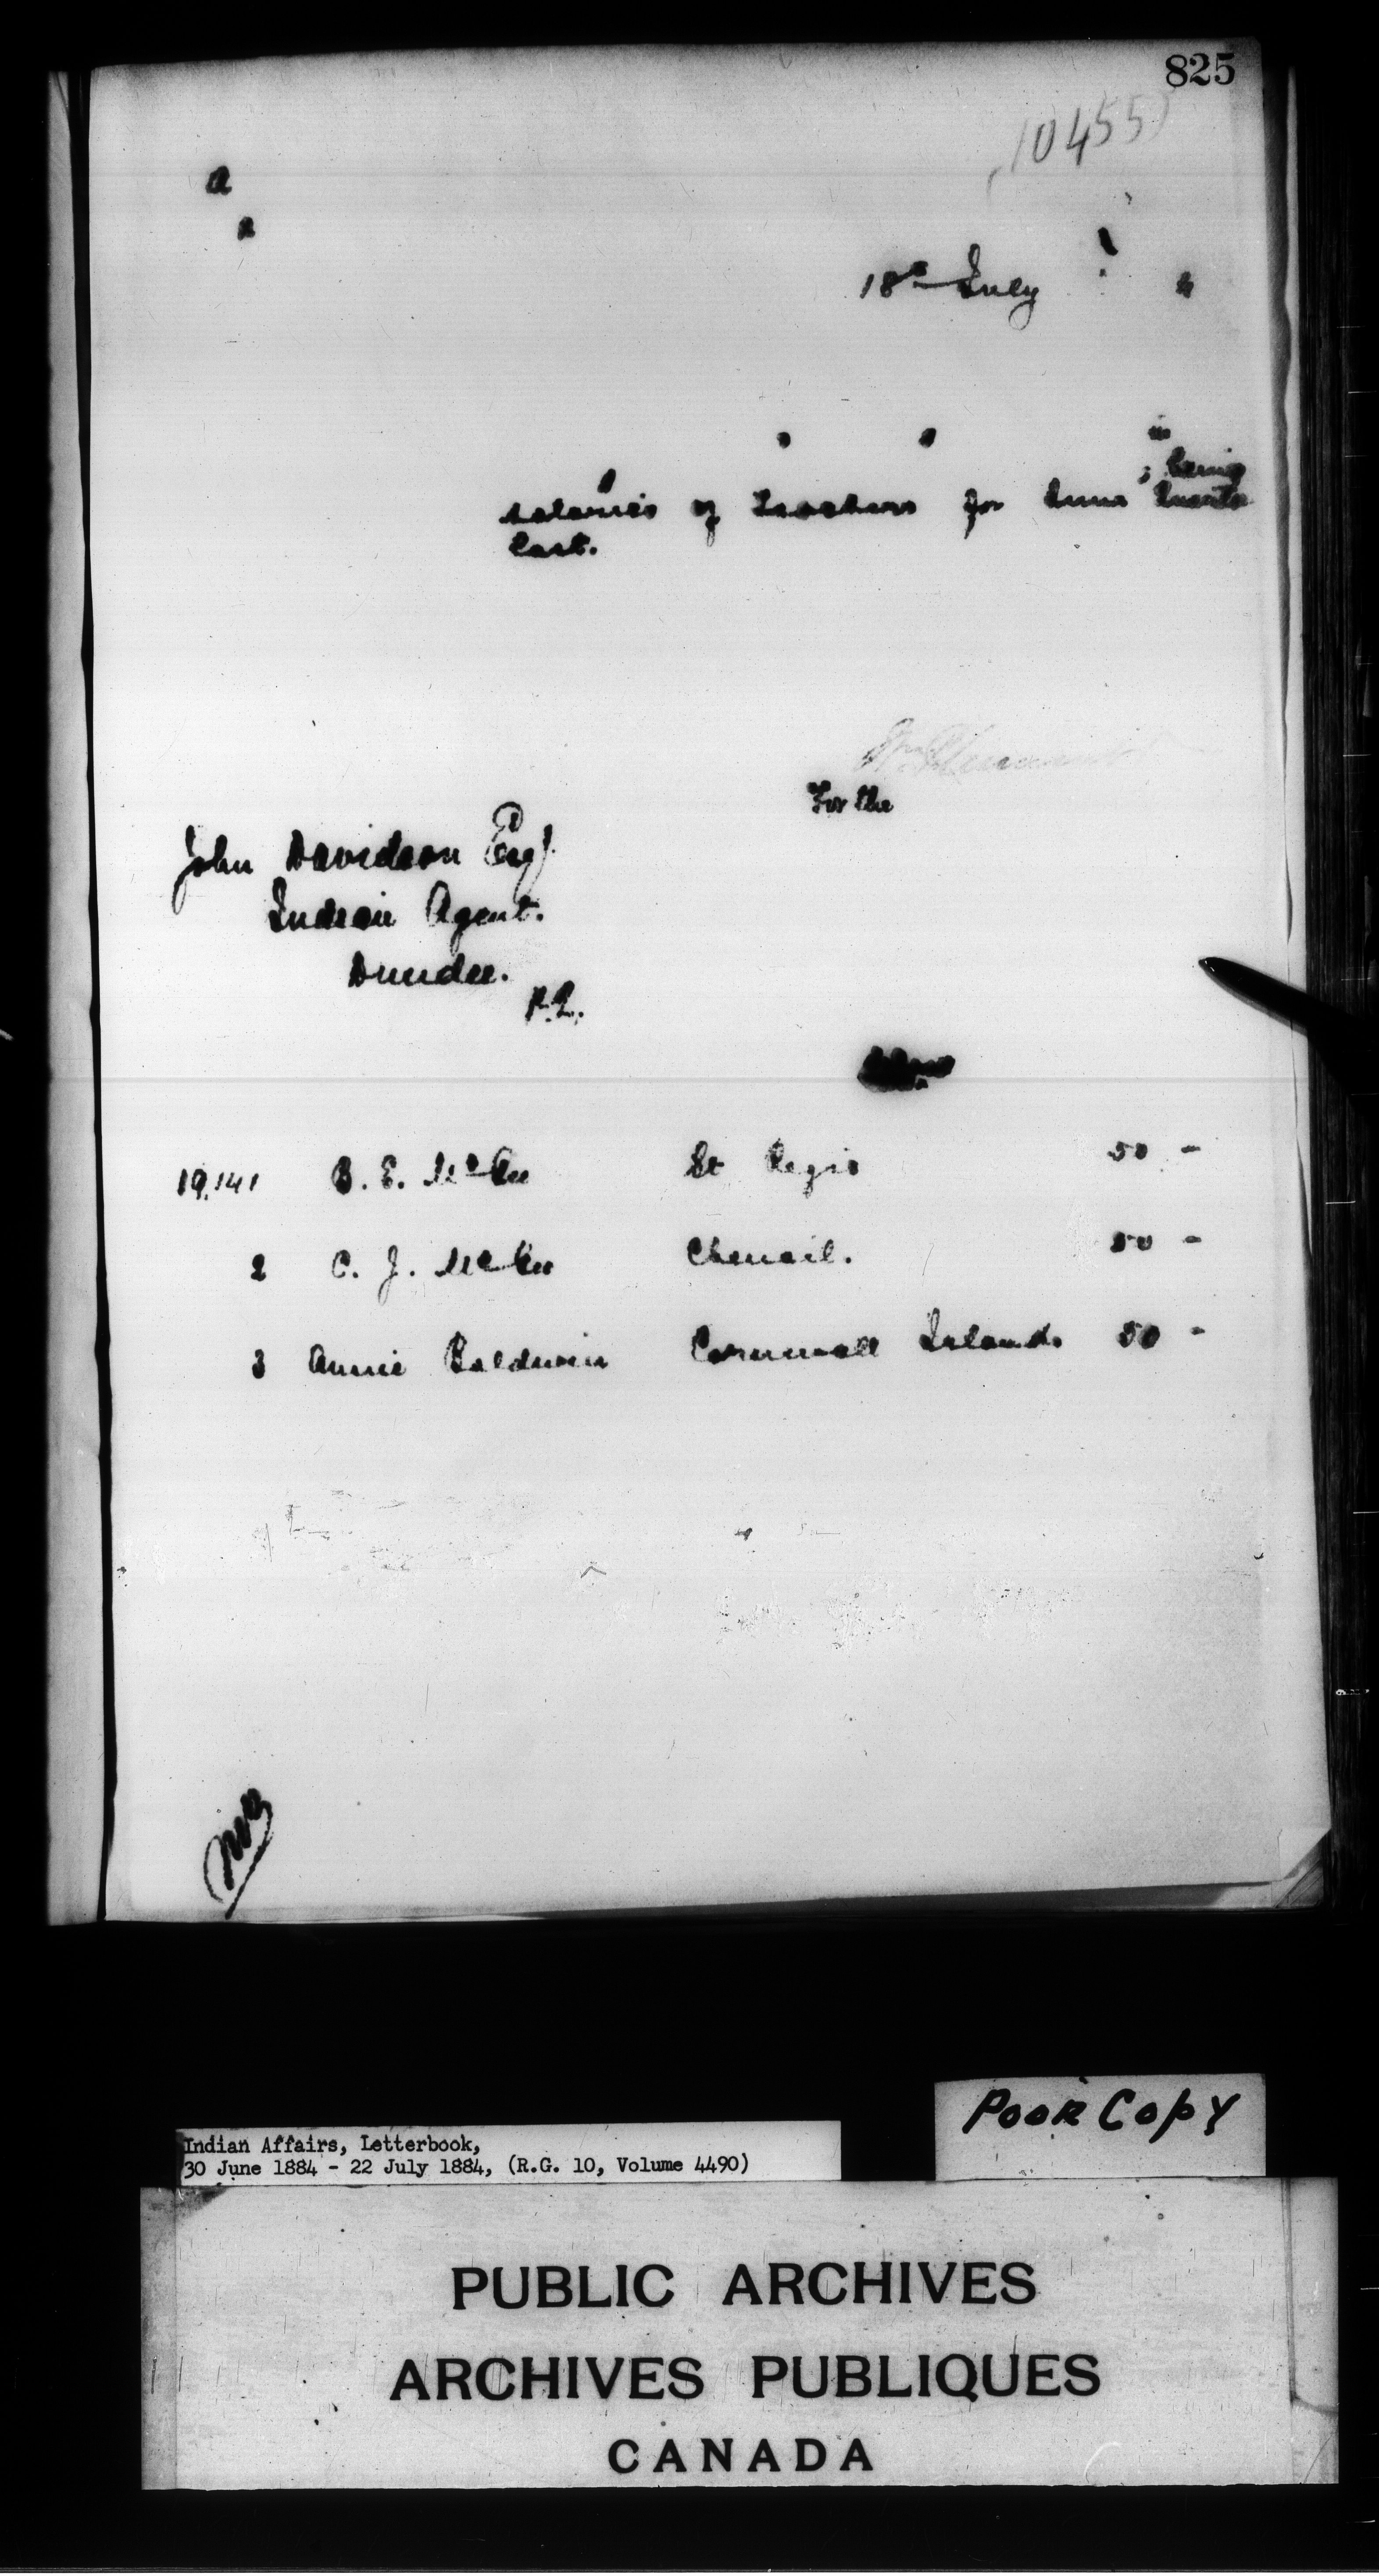 825
10455
a
2
18th July 4
3
; being
salaries of Teachers for June Quarter
last.
For the
John Davidson Esq.
Indian Agent.
Dundee.
P.Q.
19,141 B. E. McGee St Regis 50 -
2 C. J. McGee Chenail. 50 -
3 Annie Baldwin Cornwall Island. 50 -
Poor Copy
Indian Affairs, Letterbook,
30 June 1884 - 22 July 1884, (R.G. 10, Volume 4490)
PUBLIC ARCHIVES
ARCHIVES PUBLIQUES
CANADA